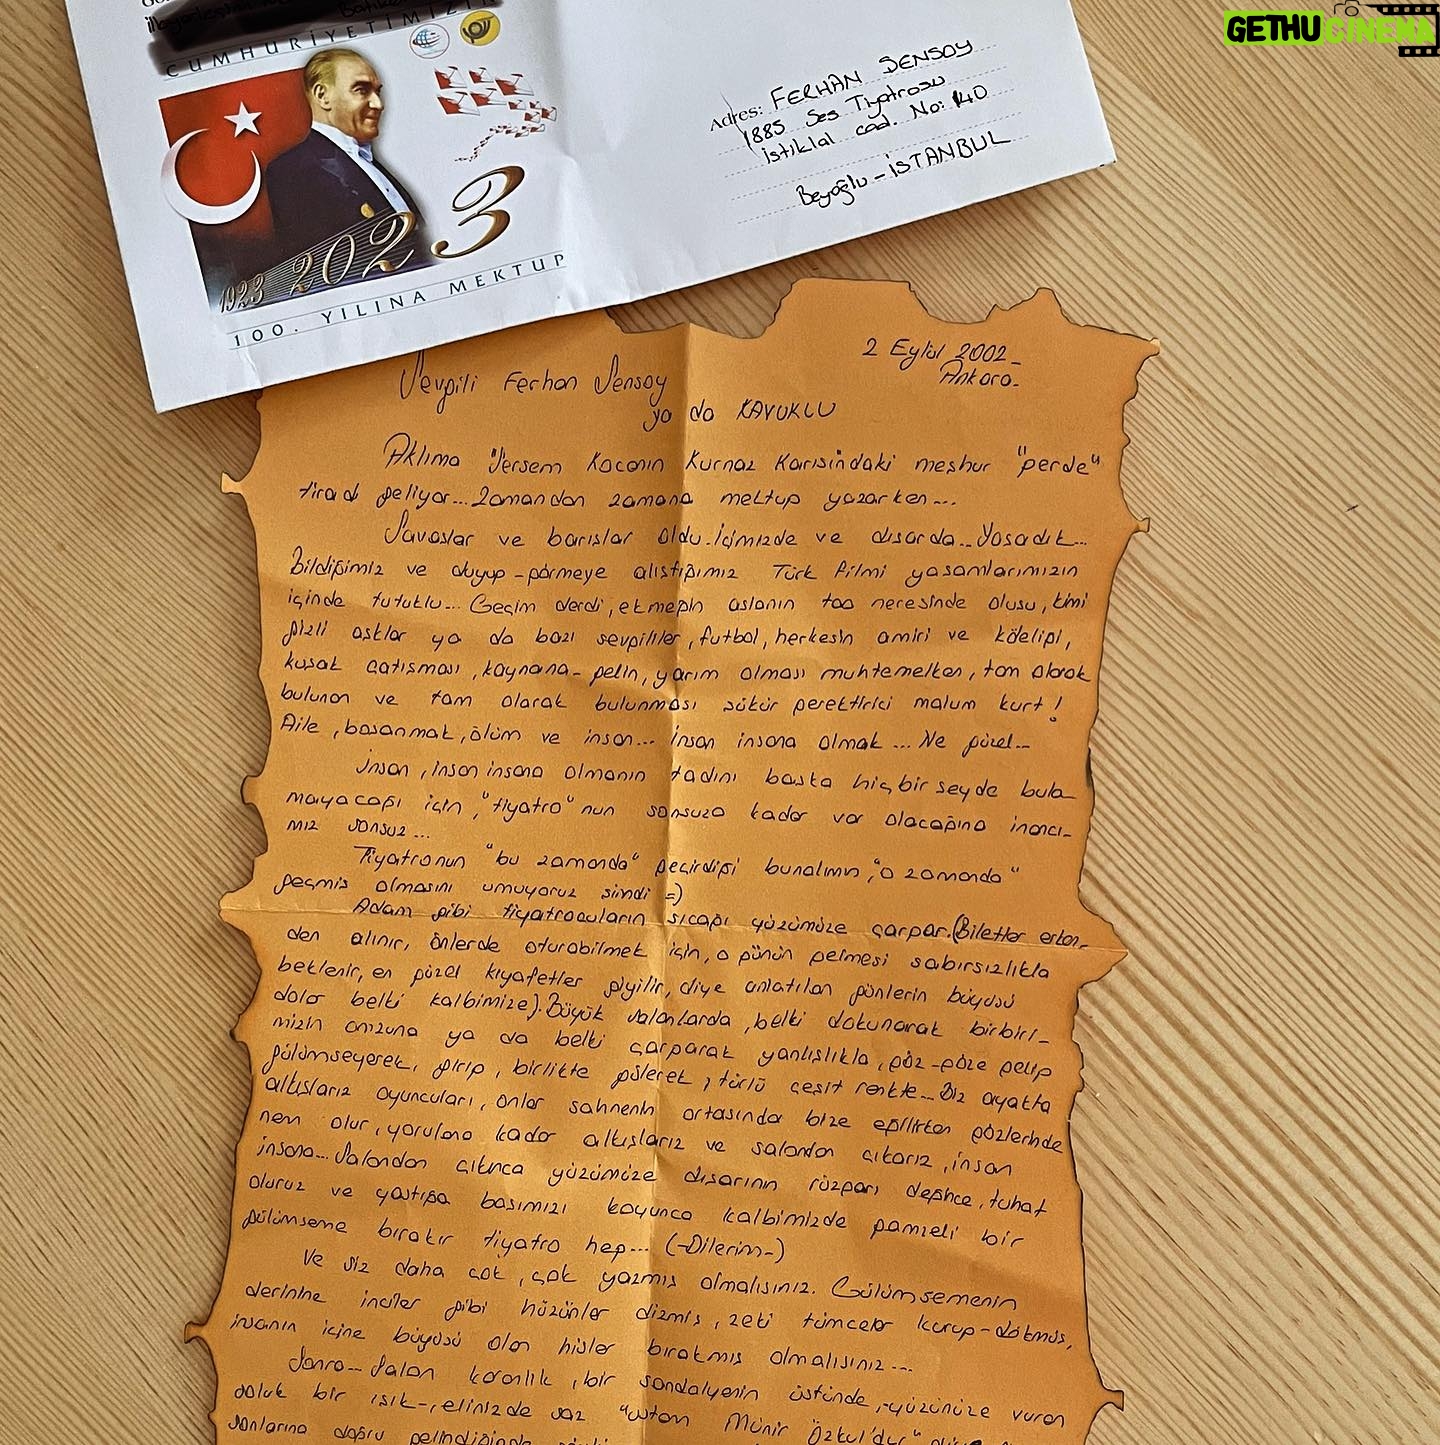 GETHU CINEMA
CUMHURİYETİMİZİN
1923 2023
100. YILINA MEKTUP
Adres: FERHAN ŞENSOY
1885 Ses Tiyatrosu
İstiklal cad. No: 140
Beyoğlu - İSTANBUL
2 Eylül 2002
Ankara.
Sevgili Ferhan Şensoy
ya da KAVUKLU
Aklıma Sersem Kocanın Kurnaz Karısındaki meşhur "perde"
tiradı geliyor... Zamandan zamana mektup yazarken...
Savaşlar ve barışlar oldu. İçimizde ve dışarda... Yaşadık...
Bildiğimiz ve duyup-görmeye alıştığımız Türk filmi yaşamlarımızın
içinde tutuklu... Geçim derdi, ekmeğin aslanın taa neresinde oluşu, kimi
gizli aşklar ya da bazı sevgililer, futbol, herkesin amiri ve köleliği,
kuşak çatışması, kaynana-gelin, yarım olması muhtemelken, tam olarak
bulunan ve tam olarak bulunması şükür gerektirici malum kurt!
Aile, boşanmak, ölüm ve insan... İnsan insana olmak... Ne güzel...
İnsan, insan insana olmanın tadını başka hiçbir şeyde bula-
mayacağı için, "tiyatro"nun sonsuza kadar var olacağına inancı-
mız sonsuz...
Tiyatronun "bu zamanda" geçirdiği bunalımın, "o zamanda"
geçmiş olmasını umuyoruz şimdi =)
Adam gibi tiyatrocuların sıcağı yüzümüze çarpar. (Biletler erken-
den alınır, önlerde oturabilmek için, o günün gelmesi sabırsızlıkla
beklenir, en güzel kıyafetler giyilir, diye anlatılan günlerin büyüsü
dolar belki kalbimize). Büyük salonlarda, belki dokunarak birbiri-
mizin omzuna ya da belki çarparak yanlışlıkla, göz-göze gelip
gülümseyerek, girip, birlikte gülerek, türlü çeşit renkte... Biz ayakta
alkışlarız oyuncuları, onlar sahnenin ortasında bize eğilirken gözlerinde
nem olur, yorulana kadar alkışlarız ve salondan çıkarız, insan
insana... Salondan çıkınca yüzümüze dışarının rüzgarı değince, tuhaf
oluruz ve yastığa başımızı koyunca kalbimizde gamzeli bir
gülümseme bırakır tiyatro hep... (-Dilerim-)
Ve siz daha çok, çok yazmış olmalısınız. Gülümsemenin
derinine inciler gibi hüzünler dizmiş, zeki tümceler kurup-dökmüş,
insanın içine büyüsü olan hisler bırakmış olmalısınız...
Sonra... Salon karanlık, bir sandalyenin üstünde, -yüzünüze vuran
soluk bir ışık-, elinizde saz "ustam Münir Özkul'dur"
sonlarına doğru gelindiğinde